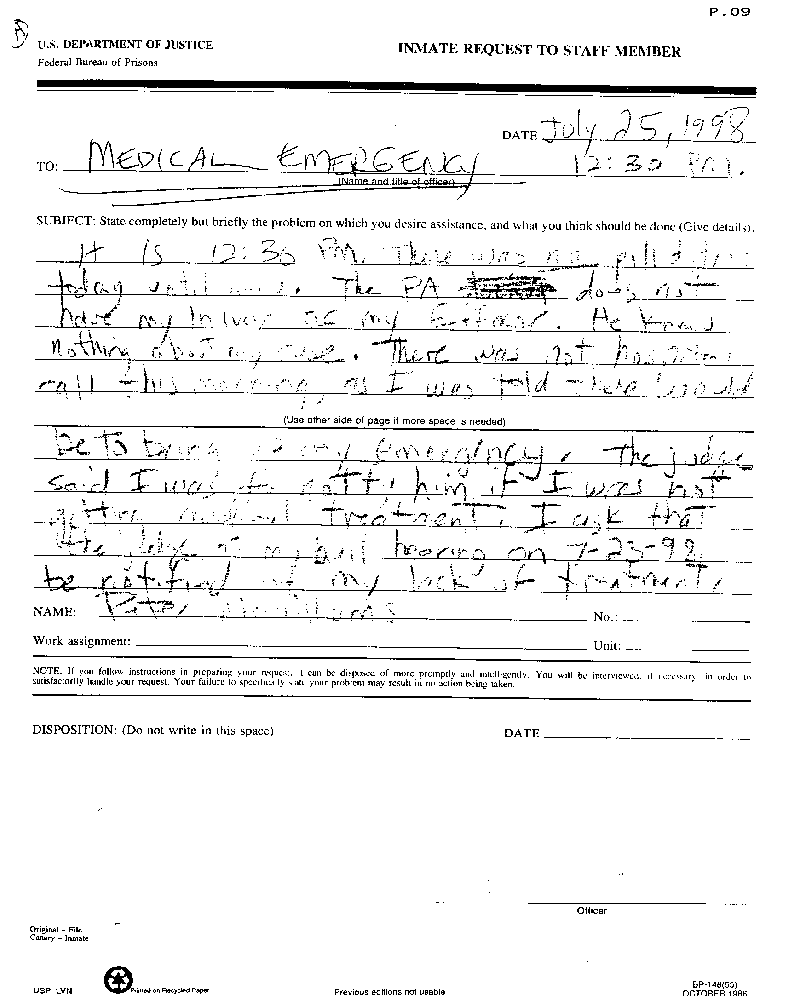 P.09
B
U.S. DEPARTMENT OF JUSTICE
Federal Bureau of Prisons
INMATE REQUEST TO STAFF MEMBER
DATE July 25, 1998
TO: MEDICAL EMERGENCY 12:30 PM.
(Name and title of officer)
SUBJECT: State completely but briefly the problem on which you desire assistance, and what you think should be done (Give details).
It is 12:30 PM. There was no pill
today until. The PA does not
have my or my. He knows
nothing about my case. There was not
call this morning, as I was told there would
(Use other side of page if more space is needed)
be to my Emergency. The judge
said I was to notify him if I was not
getting medical treatment. I ask that
the Judge at my bail hearing on 7-23-98
be notified of my lack of treatment.
NAME: Pete
No.:
Work assignment:
Unit:
NOTE: If you follow instructions in preparing your request, it can be disposed of more promptly and intelligently. You will be interviewed, if necessary in order to
satisfactorily handle your request. Your failure to specifically state your problem may result in no action being taken.
DISPOSITION: (Do not write in this space)
DATE
Officer
Original - File
Canary - Inmate
USP LVN
Printed on Recycled Paper
Previous editions not usable
BP-148(55)
OCTOBER 1986